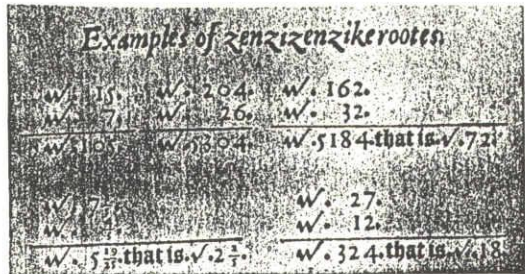 Examples of zenzizenzike rootes.
√√. 15. √√. 204. √√. 162.
√√. 7. √√. 26. √√. 32.
√√. 105. √√. 5304. √√. 5184. that is. √. 72.
√√. √√. 27.
√√. √√. 12.
√√. 5 19/25. that is. √. 2 2/5. √√. 324. that is. √. 18.